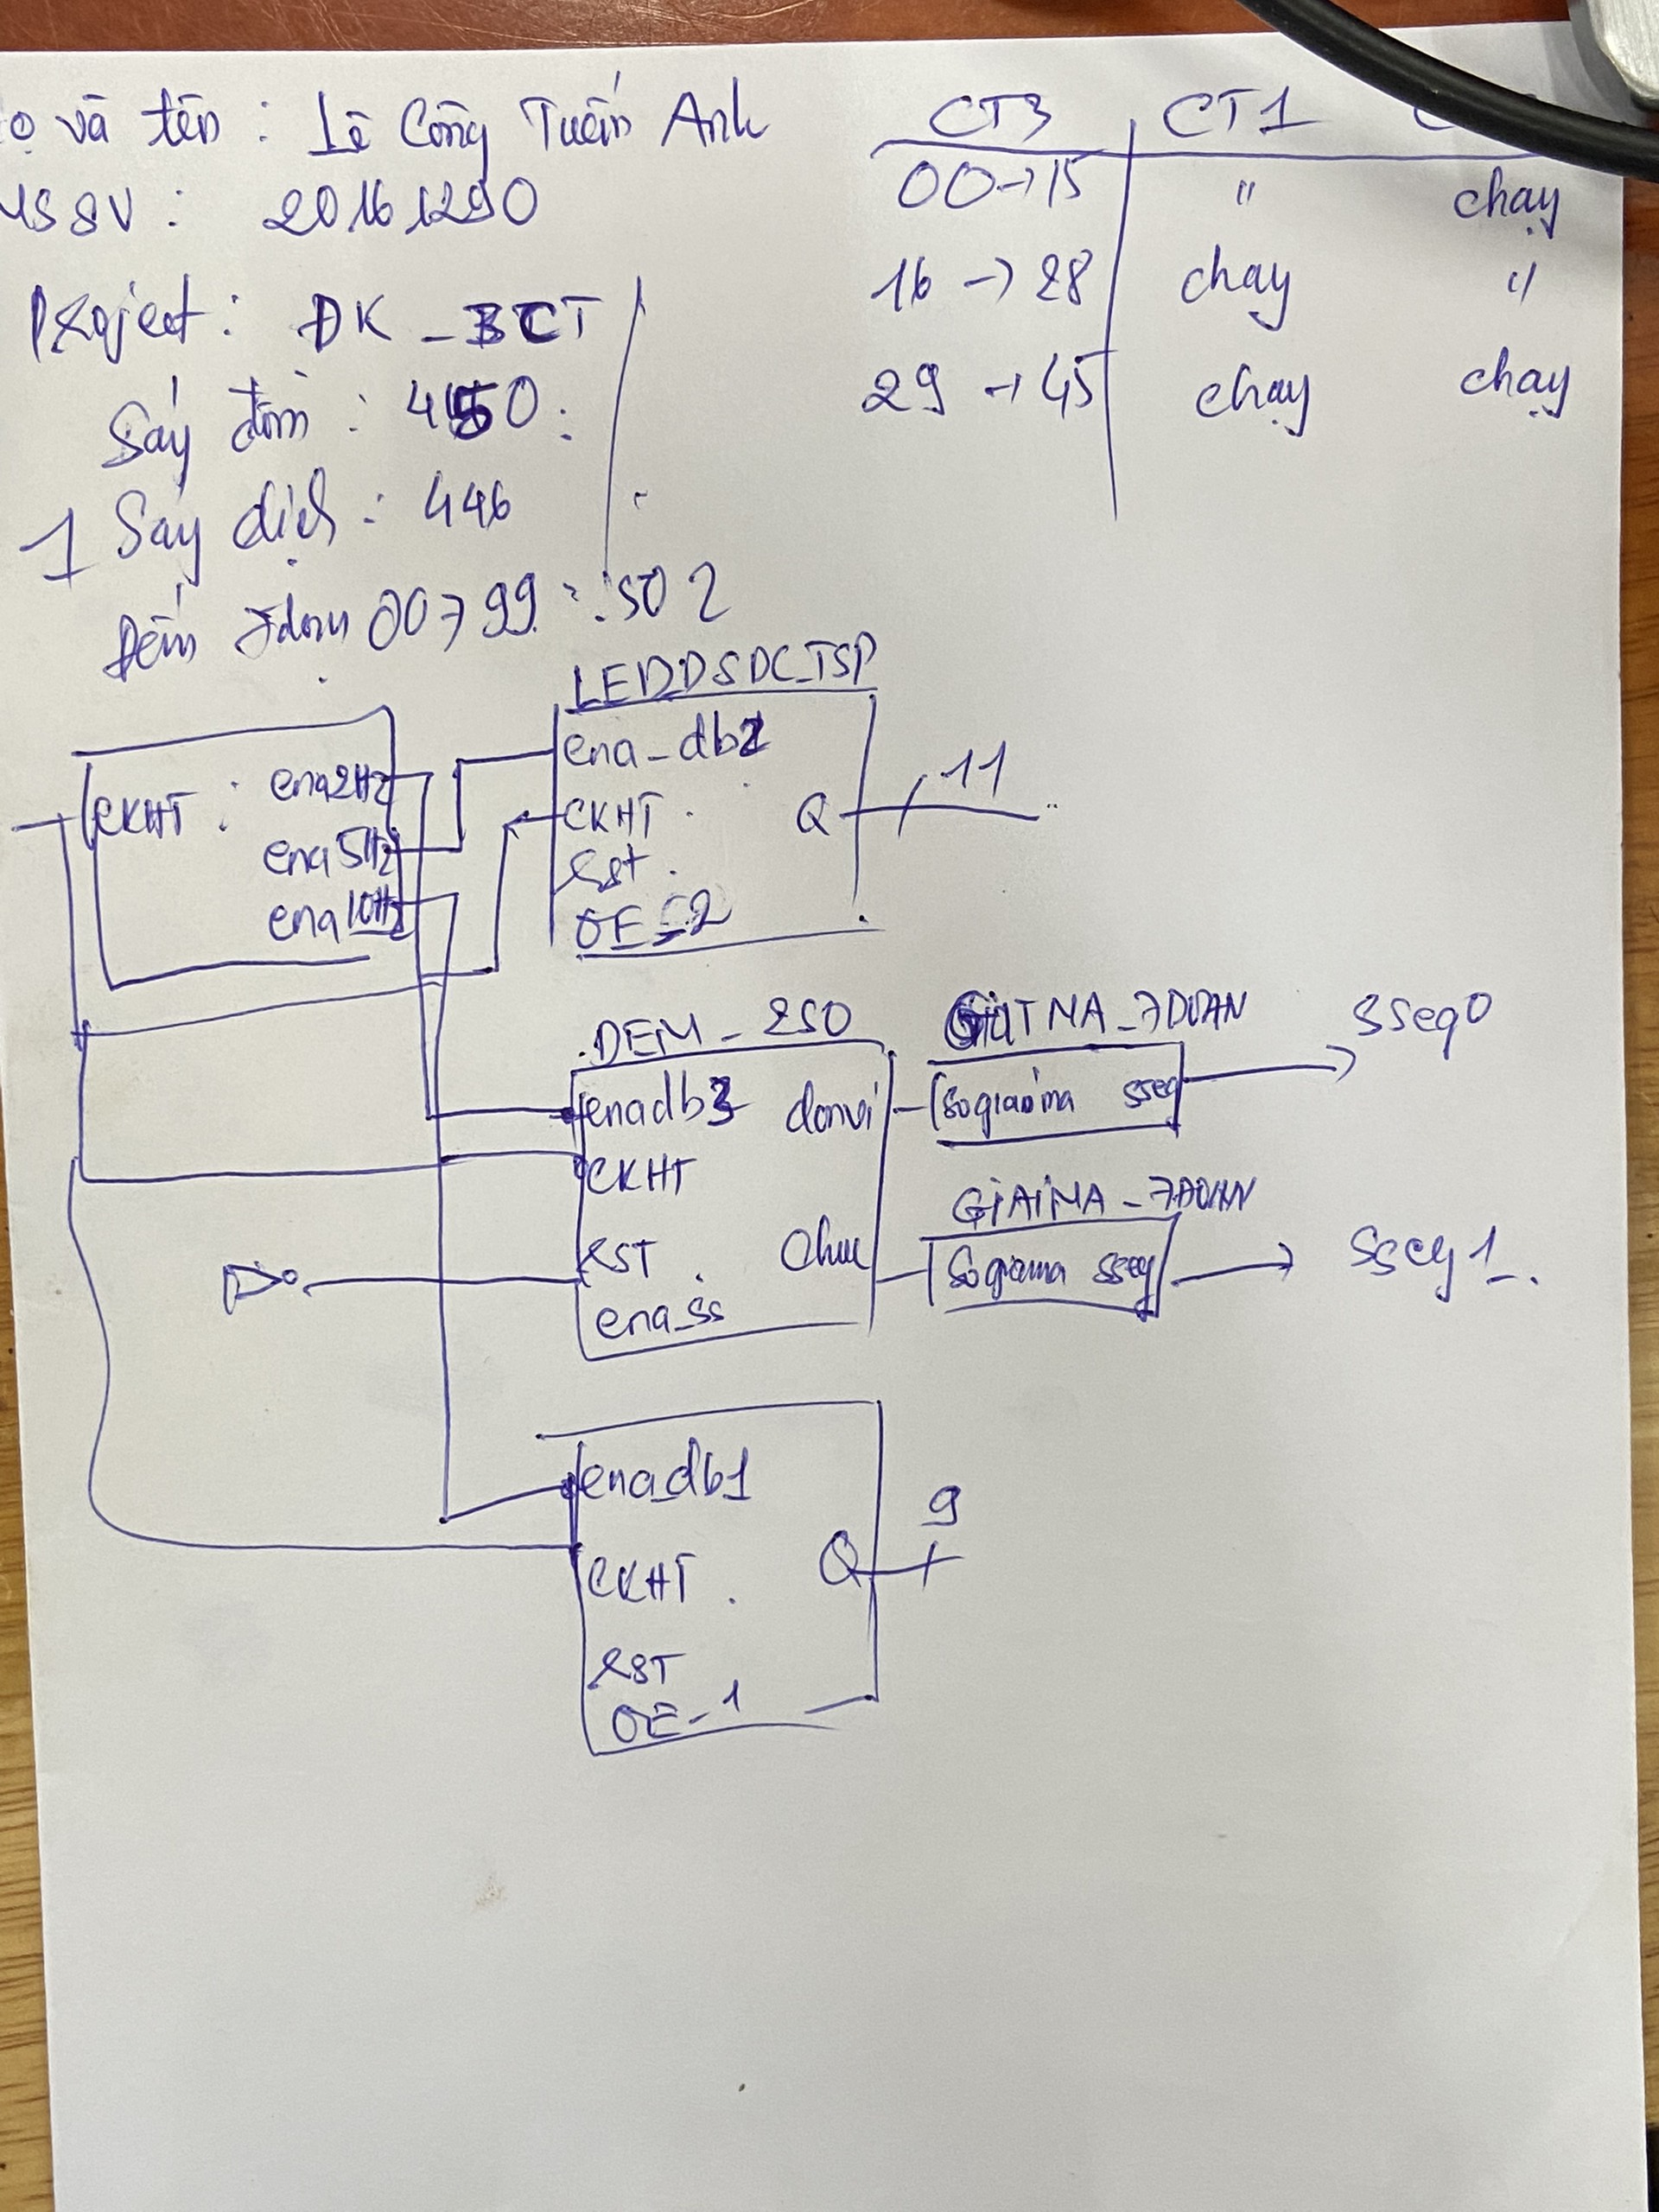 ọ và tên : Lê Công Tuấn Anh
MSSV : 20161290
Project : ĐK_3CT
Sáy đôn : 450
1 Sáy dịch : 446
Đếm 7đoạn 00 → 99 : 502
CT3 CT1
00 → 15 " chạy
16 → 28 chạy "
29 → 45 chạy chạy
CKHT ena2Hz
ena5Hz
ena10Hz
LEDDSDC_TSP
ena_db2
CKHT Q 11
RST
OE_2
DEM_2SO
enadb3 donvi
CKHT
RST Chuc
ena_ss
GIAIMA_7DOAN
Sogiaima sseg
sseg0
GIAIMA_7DOAN
Sogiaima sseg
sseg1
ena_db1
CKHT Q 9
RST
OE_1